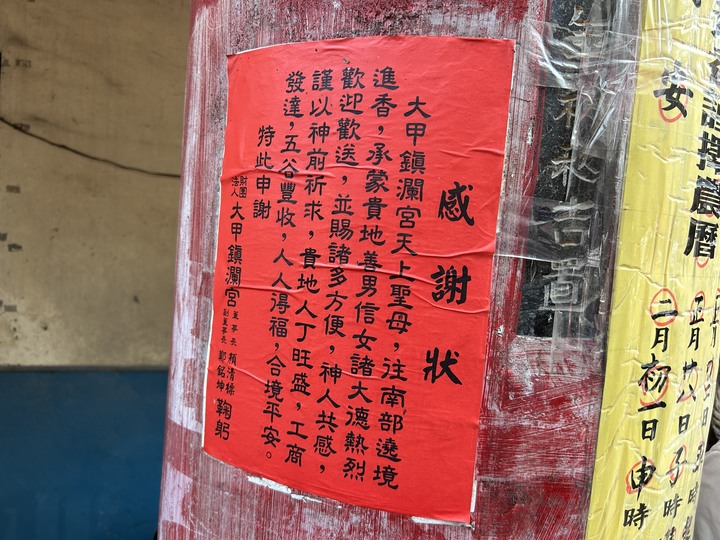 感謝狀
大甲鎮瀾宮天上聖母，往南部遶境
進香，承蒙貴地善男信女諸大德熱烈
歡迎歡送，並賜諸多方便，神人共感，
謹以神前祈求，貴地人丁旺盛，工商
發達，五谷豐收，人人得福，合境平安。
特此申謝
財團法人大甲鎮瀾宮
董事長 賴清標
副董事長 鄭銘坤
鞠躬
擇農曆
正月廿八日子時
安
二月初一日申時